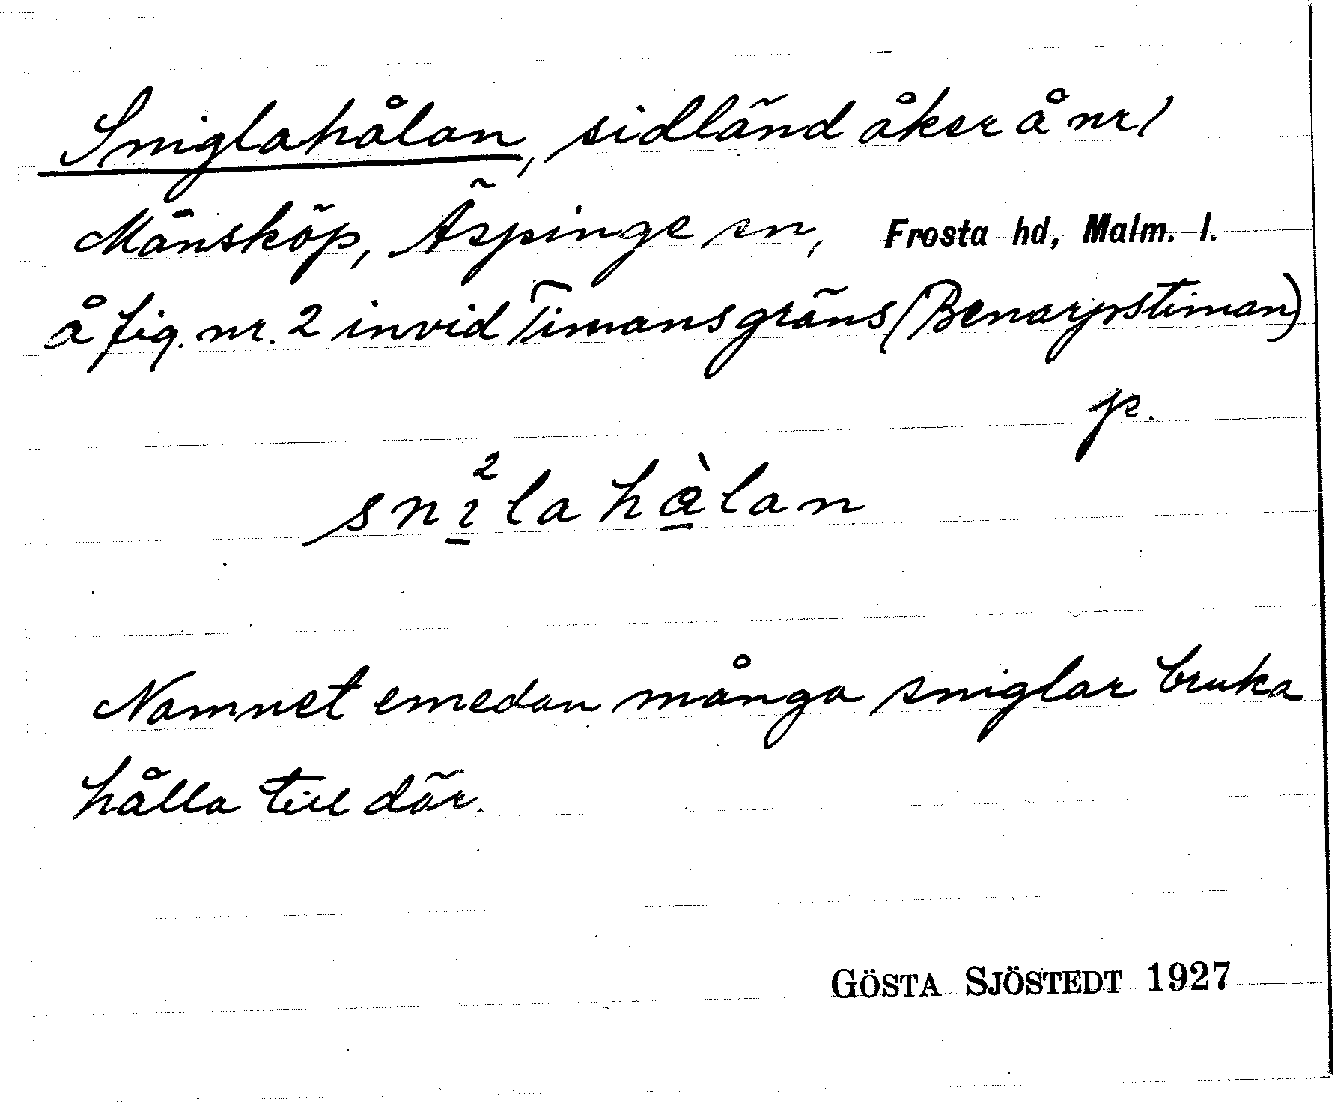 Sniglahålan, sidländ åker å nr 1
Månsköp, Äspinge sn, Frosta hd, Malm. l.
å fig. nr. 2 invid Timansgräns (Benarpstiman)
p.
snilahålan
Namnet emedan många sniglar bruka
hålla till där.
GÖSTA SJÖSTEDT 1927